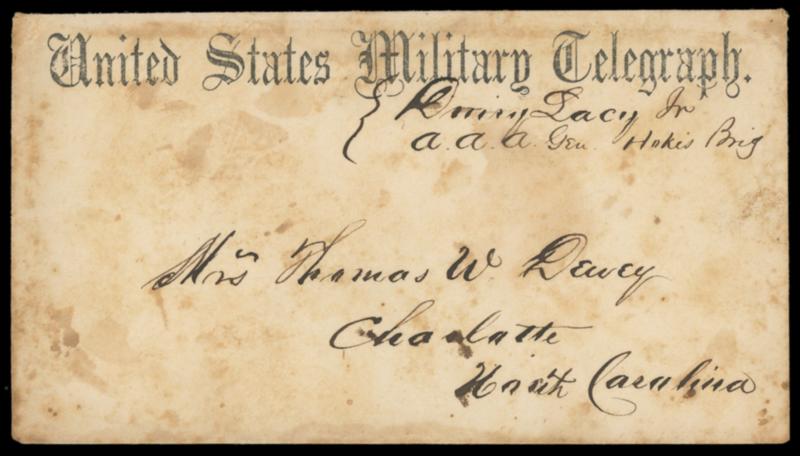 United States Military Telegraph.
Drury Lacy Jr
a. a. a. Gen. Hokes Brig
Mrs Thomas W. Dewey
Charlotte
North Carolina